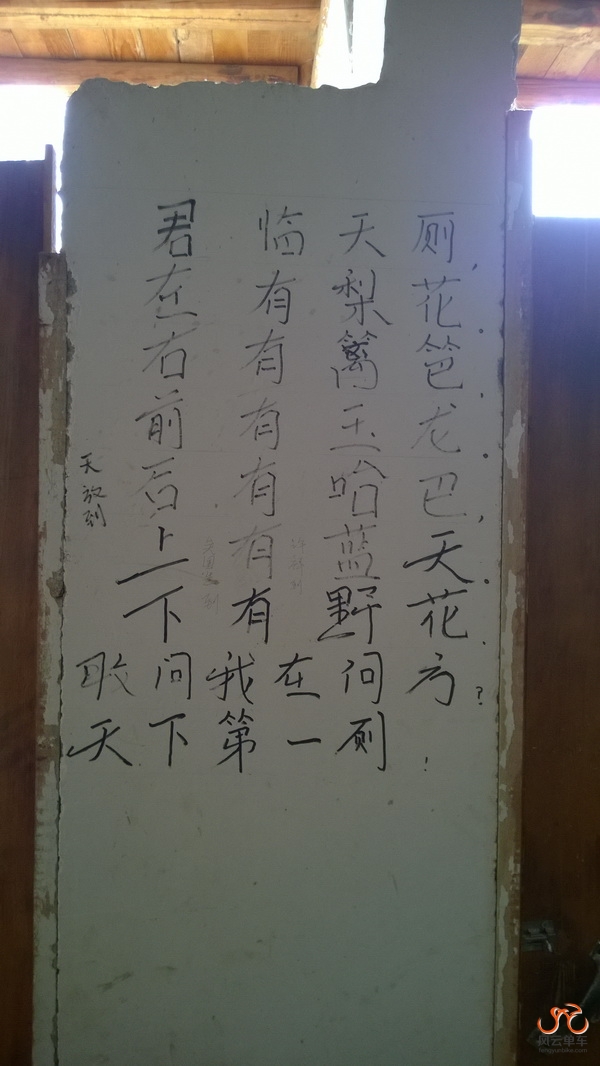 君临天厕,
左有梨花.
右有篱笆,
前有玉龙.
后有哈巴,
上有蓝天.
下有野花.
敢问我在何方?
天下第一厕!
风云单车